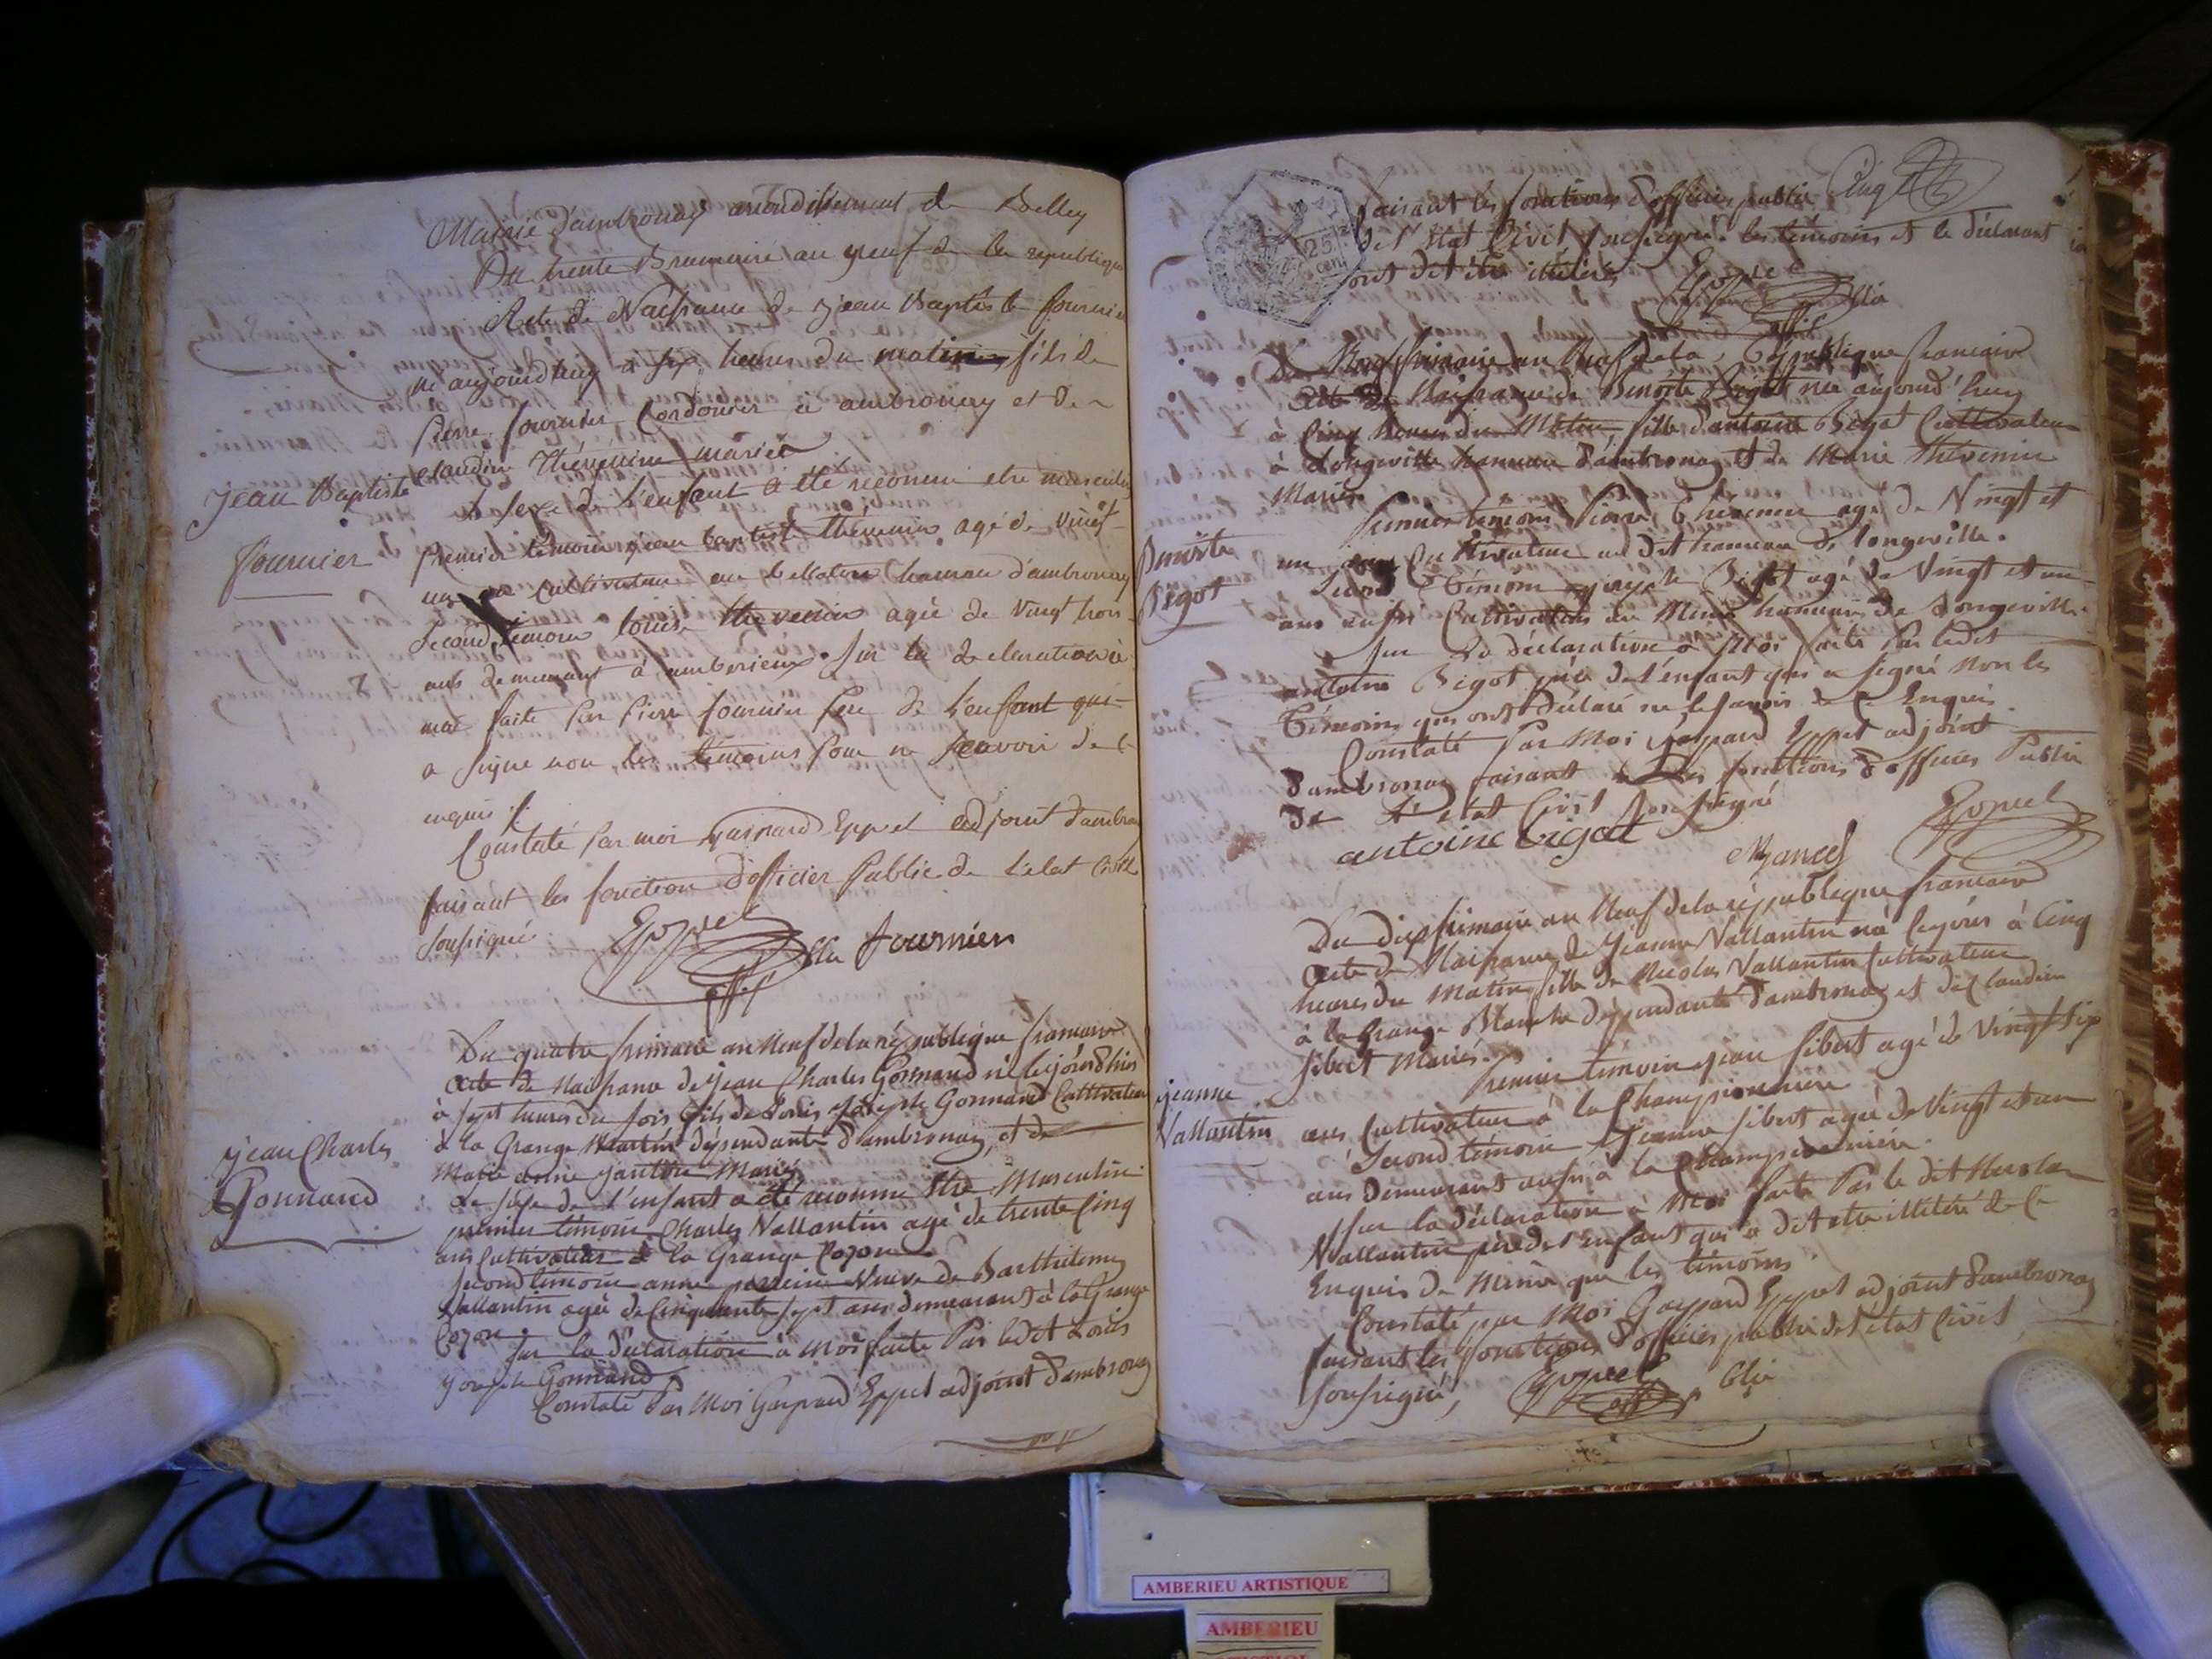 Mairie d'ambronay arrondissement de Belley
Du trente Brumaire an neuf de la republique
Acte de Naissance de jean Baptiste fournier
né aujourdhuy a six heures du matin fils de
pierre fournier Cordonier a ambronay et de
claudine Thévenin mariés
Jean Baptiste
fournier
le sexe de l'enfant a été reconnu etre masculin
Premier témoin jean baptiste thévenin agé de vingt
un cultivateur au hameau d'ambronay
Second témoin louise thevenin agée de vingt trois
ans demeurant à amberieux. Sur la declaration à
moi faite par pierre fournier pere de l'enfant qui
a signe non les temoins pour ne scavoir de ce
enquis
Constaté par moi gaspard Eppel adjoint d'ambronay
faisant les fonction d'officier Public de l'etat Civil
soussigné
Eppel fournier
Du quatre frimaire an Neuf de la république francaise
acte de Naissance de jean Charles Gonnand né le jour d'hier
à sept heures du soir fils de Louis joseph Gonnand Cultivateur
à la Grange Martin dépendante d'ambronay, et de
Marie anne Mariés
jean Charles
Gonnand
Le sexe de l'enfant a été reconnu être Masculin
premier témoin Charles Vallantin agé de trente Cinq
ans Cultivateur à la Grange Cozon
second témoin anne Veuve de Barthelemy
Vallantin agée de Cinquante sept ans demeurant à la Grange
Cozon
Sur la déclaration à Moi faite Par ledit Louis
joseph Gonnand
Constaté Par Moi Gaspard Eppel adjoint d'ambronay
faisant les fonctions d'officier public
de l'état Civil soussigné les témoins et le déclarant
ont dit être illitérés
Eppel
25 cen
Du Neuf frimaire an Neuf de la République francaise
acte de Naissance de Benoite Bigot née aujourd'huy
à Cinq heures du Matin fille d'antoine Bigot Cultivateur
à Longeville hameau d'ambronay et de Marie Thévenin
Mariés
Benoite
Bigot
Premier témoin Pierre Thevenin agé de Vingt et
un ans Cultivateur au dit hameau de longeville.
Second Témoin joseph Bigot agé de Vingt et un
ans aussi Cultivateur au Même hameau de Longeville.
Sur La déclaration à Moi faite Par ledit
antoine Bigot père de l'enfant qui a signé Non les
Témoins qui ont déclaré ne le savoir de ce Enquis.
Constaté Par Moi Gaspard Eppel adjoint
d'ambronay faisant les fonctions d'officier Public
de L'etat Civil soussigné
antoine bigot Eppel
Du dix frimaire an Neuf de la république francaise
acte de Naissance de Jeanne Vallantin né le jour à Cinq
heures du Matin fille de Nicolas Vallantin Cultivateur
à la Grange Blanche dépendante d'ambronay et de Claudine
sibert Mariés
jeanne
Vallantin
Premier témoin jean sibert agé de Vingt Six
ans Cultivateur à la Championnière
Second témoin Jeanne sibert agée de Vingt et un
ans demeurant aussi à la Championnière.
Sur la déclaration à Moi faite Par le dit Nicolas
Vallantin père de l'enfant qui a dit etre illitéré de ce
Enquis de Même que les témoins.
Constaté par Moi Gaspard Eppel adjoint d'ambronay
faisant les fonctions d'officier public de l'état Civil
soussigné,
Eppel
AMBERIEU ARTISTIQUE
AMBERIEU